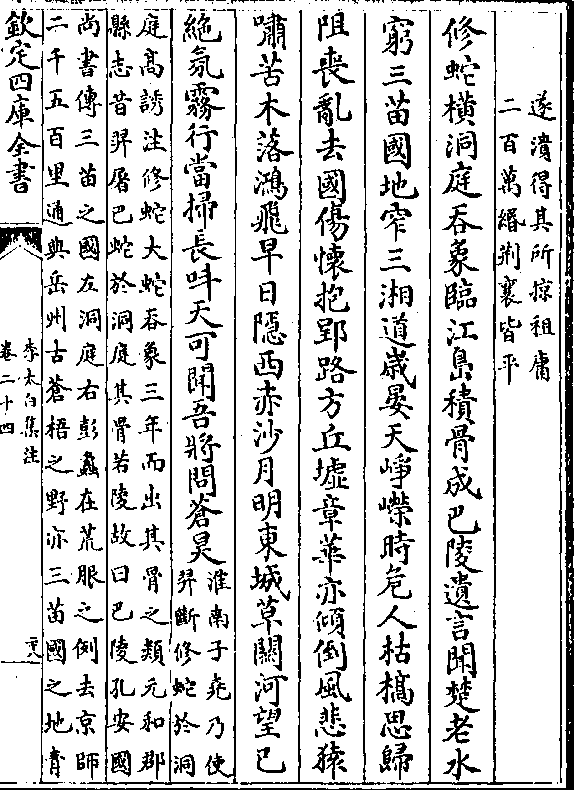 遂潰得其所掠租庸
二百萬緡荆襄皆平
修蛇橫洞庭吞象臨江島積骨成巴陵遺言聞楚老水
窮三苗國地窄三湘道歲晏天崢嶸時危人枯槁思歸
阻喪亂去國傷懷抱郢路方丘墟章華亦傾倒風悲猿
嘯苦木落鴻飛早日隱西赤沙月明東城草關河望已
絶氛霧行當掃長呌天可聞吾將問蒼昊
淮南子堯乃使
羿斷修蛇於洞
庭高誘注修蛇大蛇吞象三年而出其骨之類元和郡
縣志昔羿屠巴蛇於洞庭其骨若陵故曰巴陵孔安國
尚書傳三苗之國左洞庭右彭蠡在荒服之例去京師
二千五百里通典岳州古蒼梧之野亦三苗國之地青
欽定四庫全書
李太白集注
卷二十四
二八